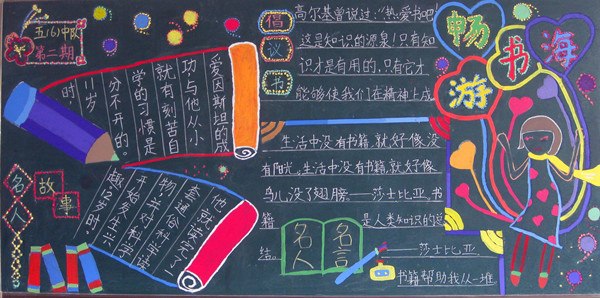 五(6)中队
第二期
爱因斯坦的成
功与他从小
就有刻苦自
学的习惯是
分不开的。
11岁
时,
他就读完了一
套通俗科学读
物,并对科学
开始发生兴
趣,12岁时,
名人
故事
倡议书
高尔基曾说过:“热爱书吧!
这是知识的源泉!只有知
识才是有用的,只有它才
能够使我们在精神上成
生活中没有书籍,就好像没
有阳光,生活中没有书籍,就好像
鸟儿没了翅膀——莎士比亚。书
籍 是人类知识的总
结。 ——莎士比亚
书籍帮助我从一堆
名人
名言
畅游书海